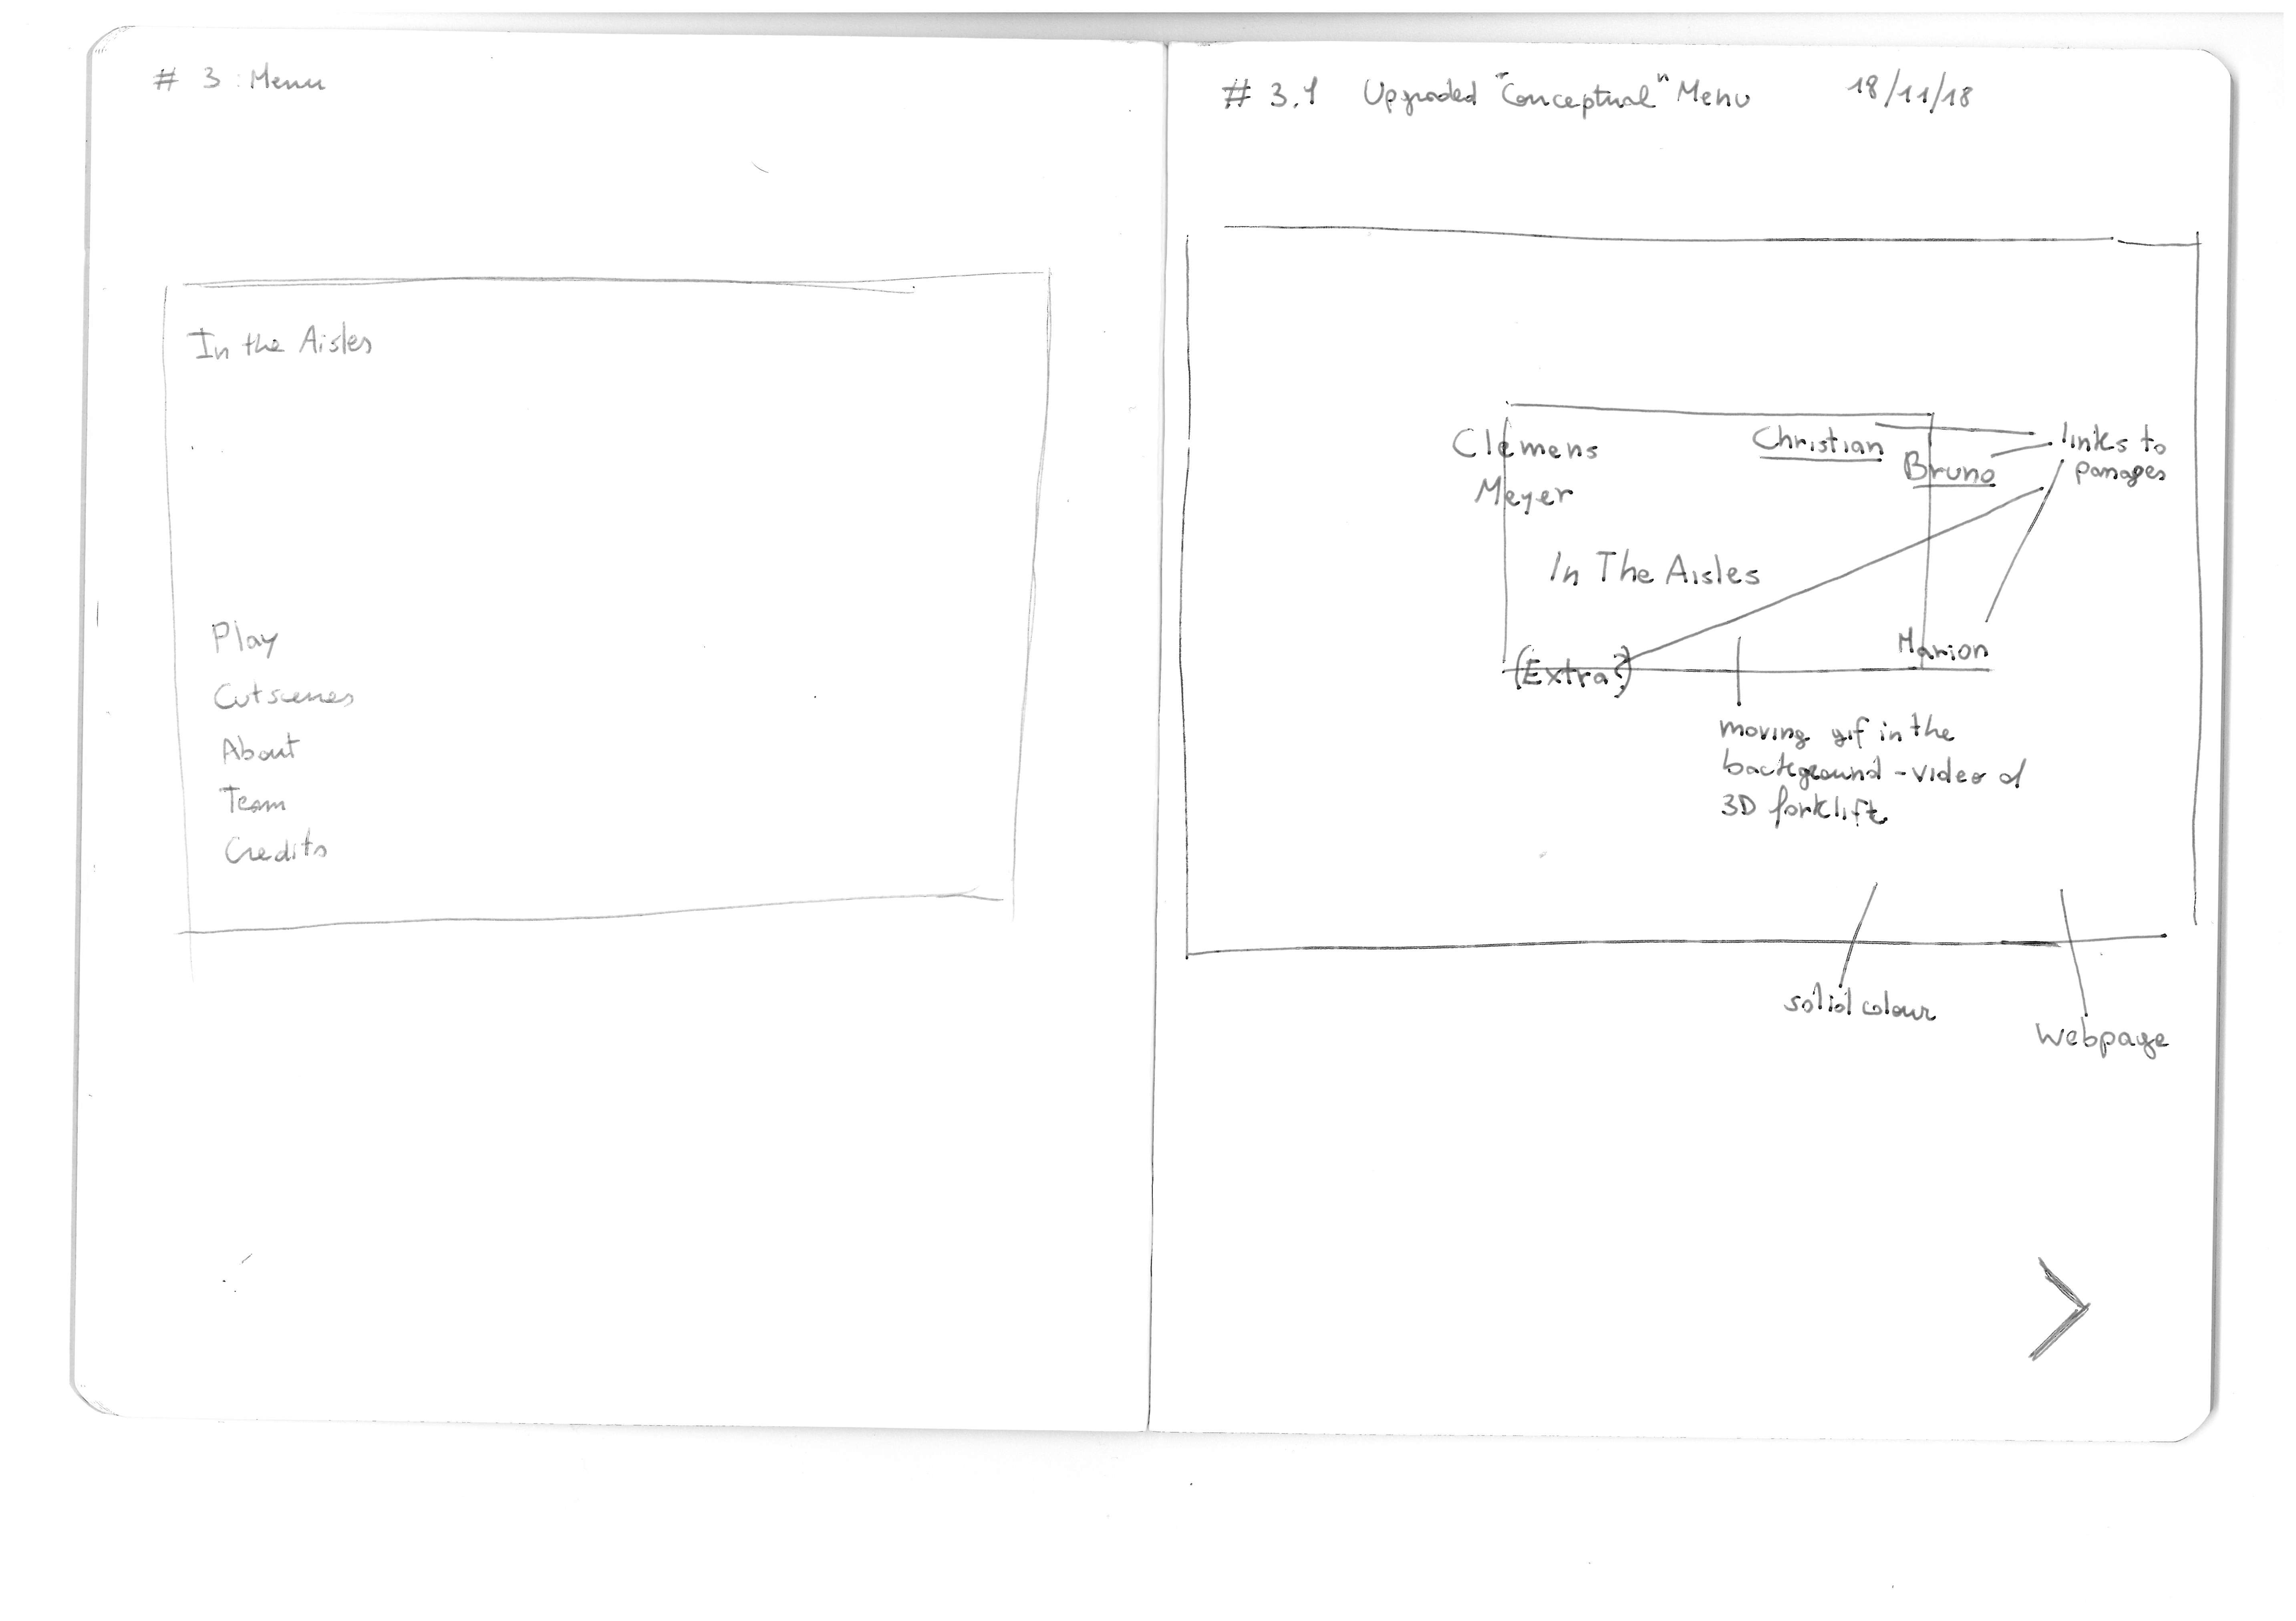 # 3: Menu
In the Aisles
Play
Cutscenes
About
Team
Credits
# 3.1 Upgraded "Conceptual" Menu 18/11/18
Clemens
Meyer
Christian
Bruno
links to
passages
In The Aisles
(Extra?)
Marion
moving gif in the
background - video of
3D forklift
solid colour
webpage